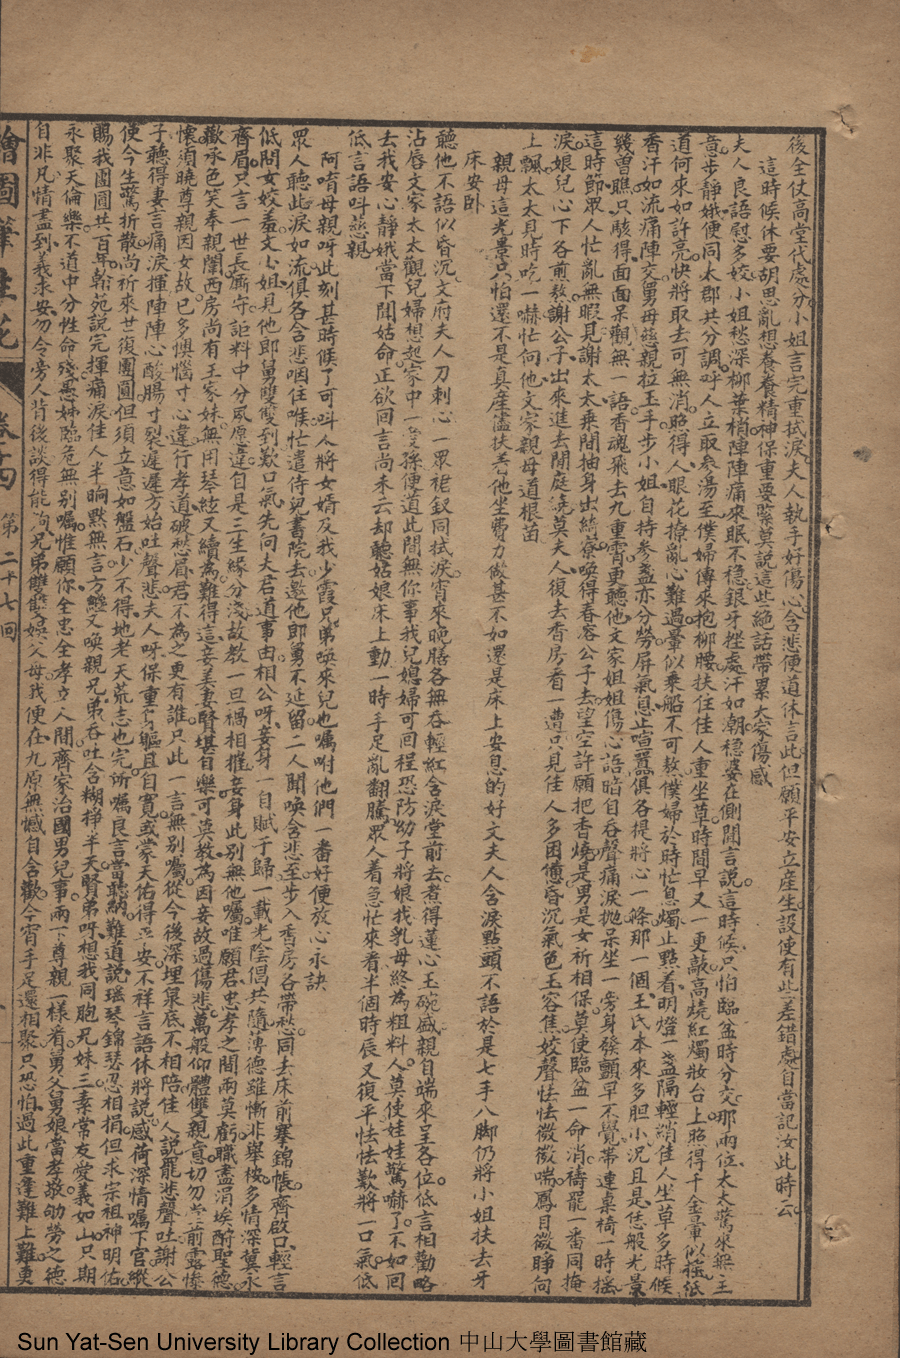 後全仗高堂代處分小姐言完重拭淚夫人執手好傷心含悲便道休言此但願平安立産生設使有些差錯處自當記汝此時云
這時候休要胡思亂想養養精神保重要緊莫說這些絕話帶累大家傷感
夫人良語慰多姣小姐愁深柳葉梢陣陣痛來眠不穩銀牙挫處汗如潮穩婆在側開言說這時候只怕臨盆時分交那兩位太太驚來無主
意步靜娥便同太郡共分調呼人立取參湯至僕婦傳來抱柳腰扶住佳人重坐草時間早又一更敲高燒紅燭妝台上照得千金暈似搖低
道何來如許亮快將取去可無消照得人眼花撩亂心難過暈似乘船不可熬僕婦於時忙息燭止點着明燈一盞隔輕綃佳人坐草多時候
香汗如流痛陣交舅母慈親拉玉手步小姐自持參盞亦分勞屏氣息止喧囂俱各提將心一條那一個王氏本來多胆小況且是恁般光景
幾曾瞧只駭得面面呆觀無一語香魂飛去九重霄更聽他文家姐姐傷心語暗自吞聲痛淚抛呆坐一旁身發顫早不覺帶連桌椅一時搖
這時節眾人忙亂無暇見謝太太乘間抽身出綺寮喚得春容公子去望空許願把香燒是男是女祈相保莫使臨盆一命消禱罷一番同掩
淚娘兒心下各煎熬謝公子出來進去閒庭遶莫夫人復去香房看一遭只見佳人多困憊昏沉氣色玉容焦姣聲怯怯微微喘鳳目微睜向
上飄太太見時吃一嚇忙向他文家親母道根苗
親母這光景只怕還不是真産儘扶着他坐費力做甚不如還是床上安息的好文夫人含淚點頭不語於是七手八脚仍將小姐扶去牙
床安卧
聽他不語似昏沉文府夫人刀刺心一眾裙釵同拭淚宵來晚膳各無吞輕紅含淚堂前去煮得蓮心玉碗盛親自端來呈各位低言相勸略
沾唇文家太太觀兒婦想起家中一雙孫便道此間無你事我兒媳婦可回程恐防幼子將娘找乳母終為粗料人莫使娃娃驚嚇了不如回
去我安心靜娥當下聞姑命正欲回言尚未云却聽姑娘床上動一時手足亂翻騰眾人着急忙來看半個時辰又復平怯怯歎將一口氣低
低言語叫慈親
阿唷母親呀此刻甚時候了可叫人將女婿及我少霞兄弟喚來兒也囑咐他們一番好便放心永訣
眾人聽此淚如流俱各含悲咽住喉忙遣侍兒書院去邀他郎舅不延留二人聞喚含悲至步入香房各帶愁同去床前搴錦帳齊啟口輕言
低問女姣羞文小姐見他郎舅雙雙到歎口氣先向夫君道事由相公呀妾身一自賦于歸一載光陰倡共隨薄德雖慚非舉桉多情深冀永
齊眉只言一世長廝守詎料中分夙愿違自是三生緣分淺故教一旦禍相摧妾身此別無他囑唯願君忠孝之間兩莫虧職盡涓埃酧聖德
歡承色笑奉親闈西房尚有王家妹無用琴絃又續為難得這妾美妻賢堪自樂可莫教為因妾故過傷悲萬般仰體雙親意切勿堂前露慘
懷須曉尊親因女故已多懊惱寸心違行孝道破愁眉君不為之更有誰只此一言無別囑從今後深埋泉底不相陪佳人說罷悲聲吐謝公
子聽得妻言痛淚揮陣陣心酸腸寸裂遲遲方始吐聲悲夫人呀保重身軀且自寬或蒙天佑得平安不祥言語休將說感荷深情囑下官縱
使今生鸞折散尚祈來世復團圓但須立意如盤石少不得地老天荒志也完所囑良言當聽納難道說瑤琴錦瑟忍相捐但求宗祖神明佑
賜我團圓共百年翰苑說完揮痛淚佳人半晌默無言方纔又喚親兄弟吞吐含糊掙半天賢弟呀想我同胞兄妹三素常友愛義如山只期
永聚天倫樂不道中分性命殘愚姊臨危無別囑惟願你全忠全孝立人間齊家治國男兒事兩下尊親一様看舅父舅娘當孝敬劬勞之德
自非凡情盡到義求安勿令旁人背後談得能殉兄弟雙雙娛父母我便在九原無憾自含歡今宵手足還相聚只恐怕過此重逢難上難更
繪圖筆生花 卷十四 第二十七回
Sun Yat-Sen University Library Collection 中山大學圖書館藏